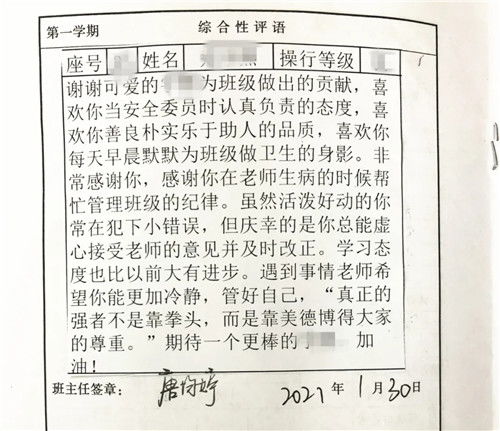 第一学期 综合性评语
座号 姓名 操行等级
谢谢可爱的 为班级做出的贡献，喜
欢你当安全委员时认真负责的态度，喜
欢你善良朴实乐于助人的品质，喜欢你
每天早晨默默为班级做卫生的身影。非
常感谢你，感谢你在老师生病的时候帮
忙管理班级的纪律。虽然活泼好动的你
常在犯下小错误，但庆幸的是你总能虚
心接受老师的意见并及时改正。学习态
度也比以前大有进步。遇到事情老师希
望你能更加冷静，管好自己，“真正的
强者不是靠拳头，而是靠美德博得大家
的尊重。”期待一个更棒的 加
油！
班主任签章： 唐 婷 2021 年 1 月 30 日